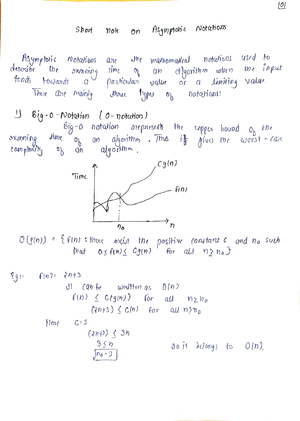 Short Note on Asymptotic Notations
Asymptotic Notations are the mathematical notations used to
describe the running time of an algorithm when the input
tends towards a particular value or a limiting value
There are mainly three types of notations:
1) Big-O-Notation (O-notation)
Big-O notation represents the upper bound of the
running time of an algorithm. Thus it gives the worst-case
complexity of an algorithm.
Time
Cg(n)
f(n)
n₀
n
O(g(n)) = { f(n): there exist the positive constant C and n₀ such
that 0 ≤ f(n) ≤ Cg(n) for all n ≥ n₀ }
Eg:- f(n) = 2n+3
It can be written as O(n)
f(n) ≤ C(g(n)) for all n ≥ n₀
(2n+3) ≤ C(n) for all n ≥ n₀
Here C=3
(2n+3) ≤ 3n
3 ≤ n
n₀=3
So it belongs to O(n)